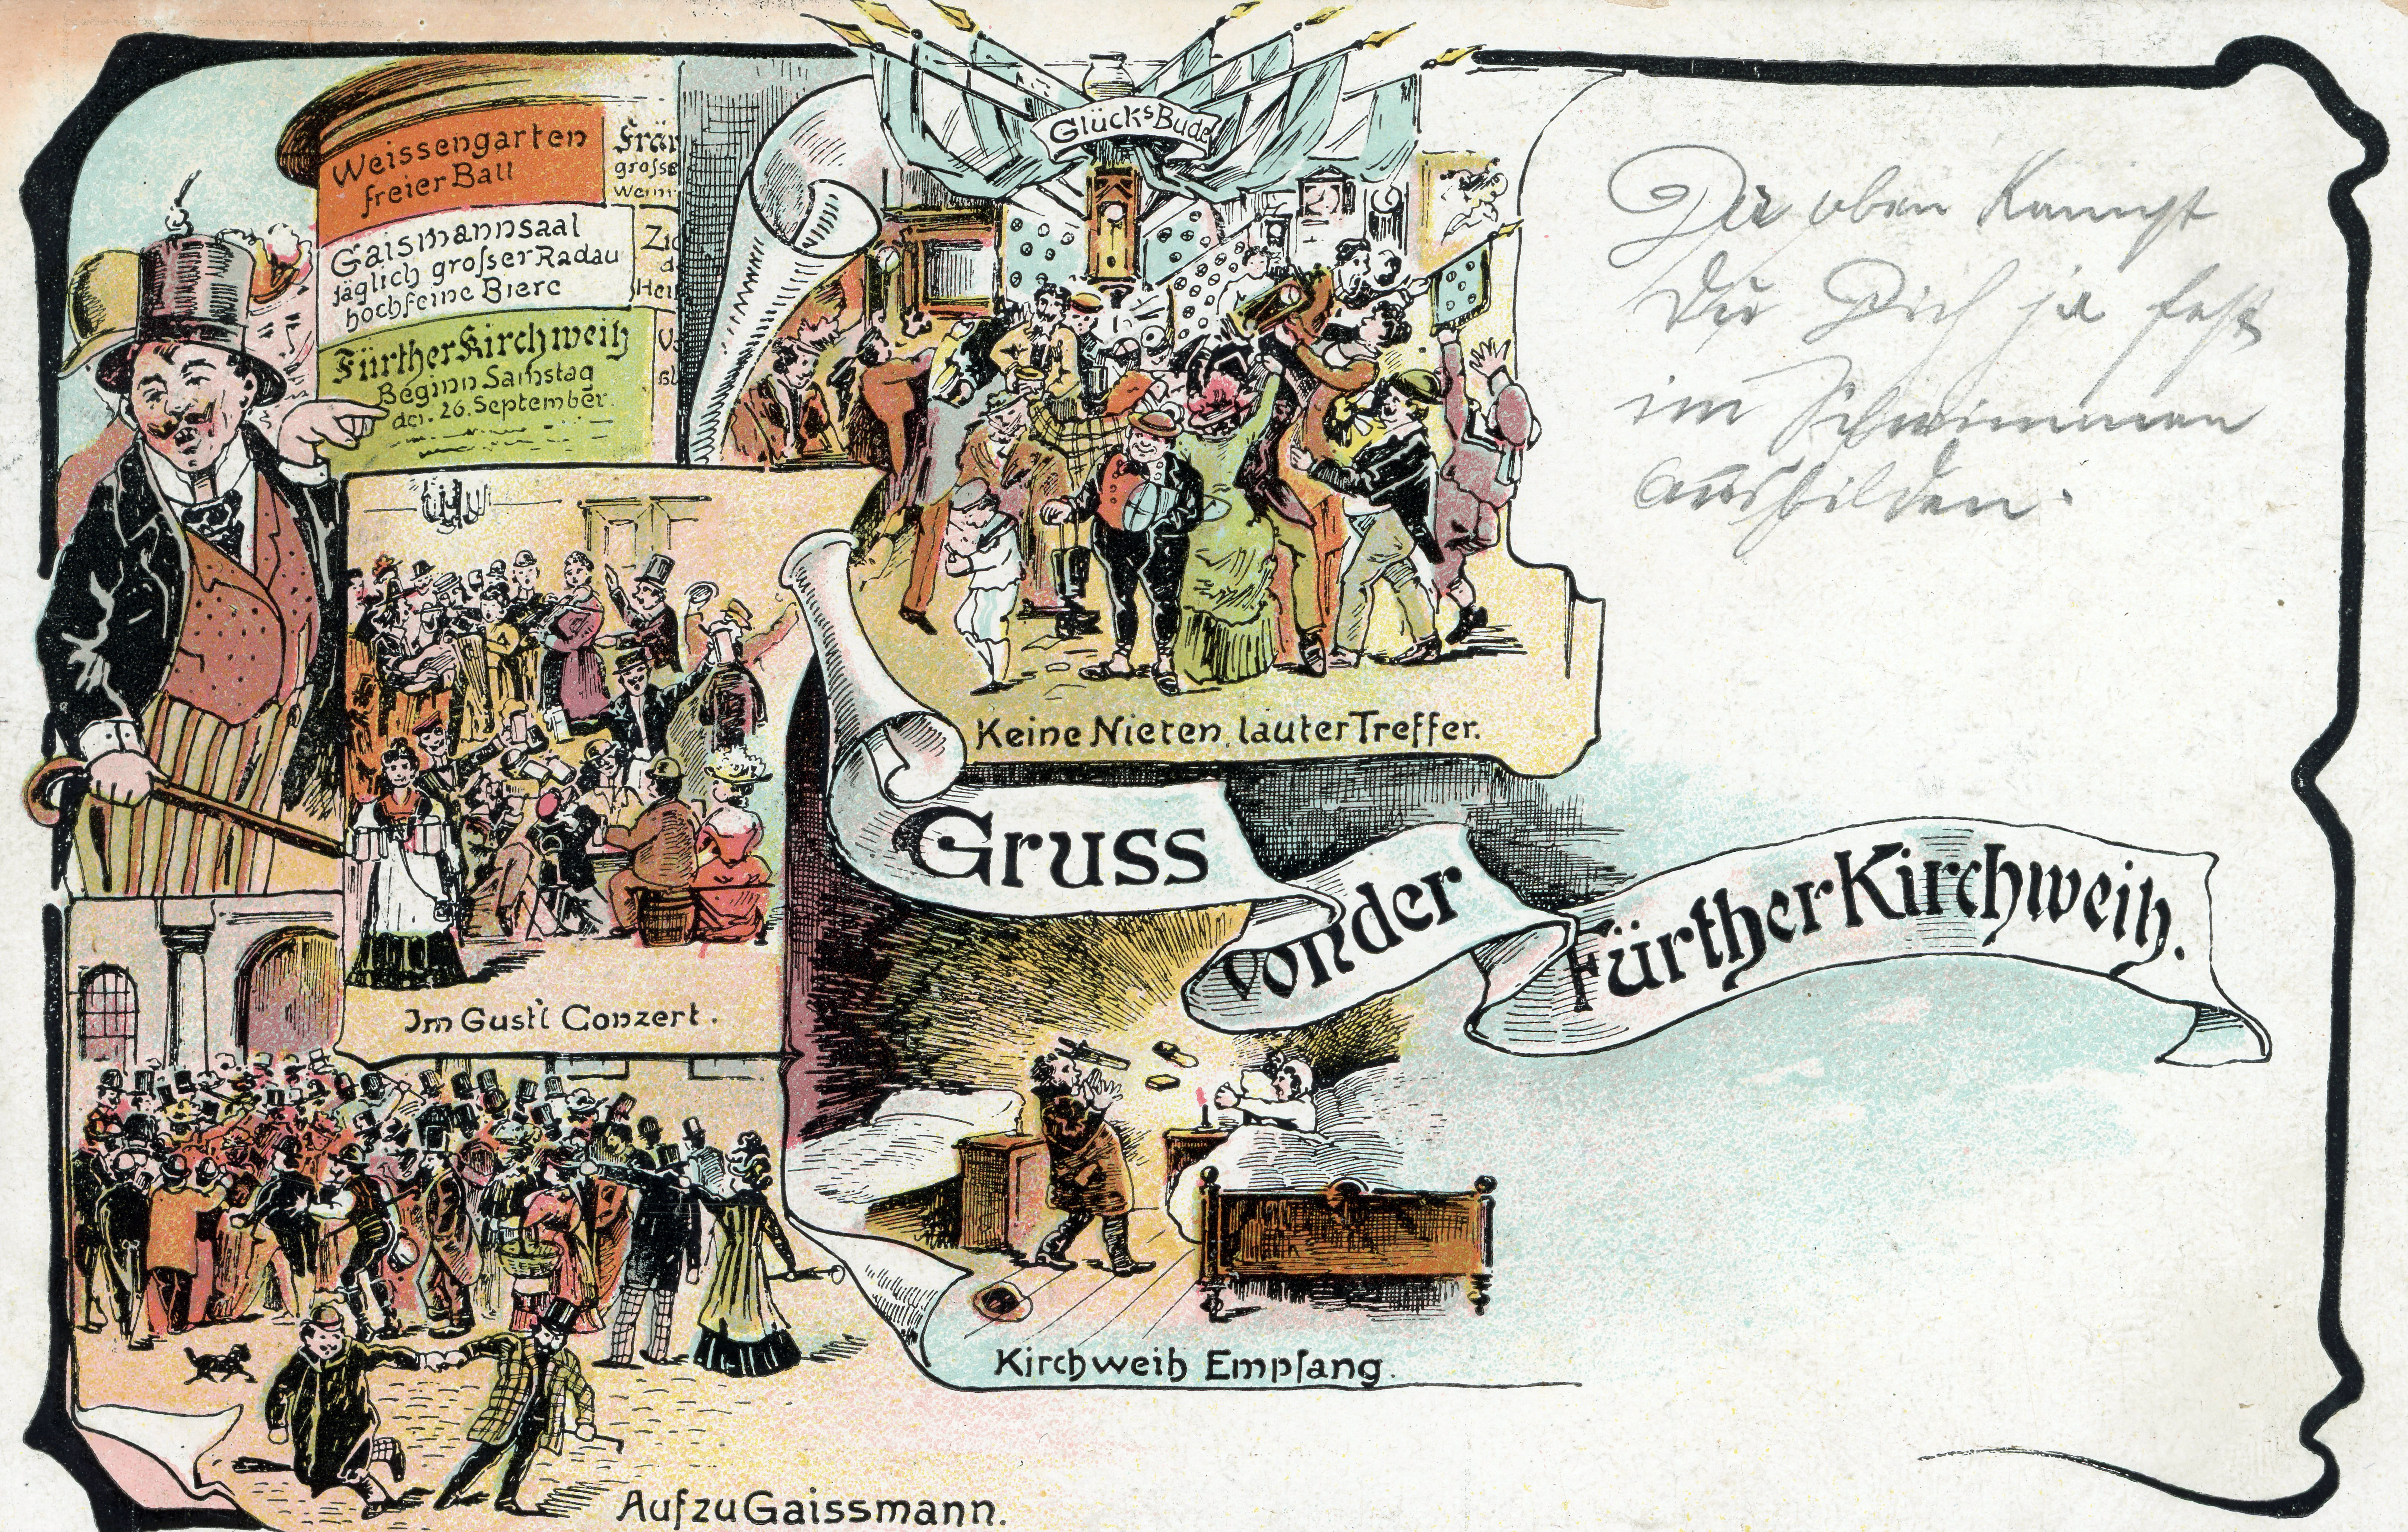 Weissengarten
freier Ball
Gaismannsaal
täglich grosser Radau
hochfeine Biere
Fürther Kirchweih
Beginn Samstag
den 26. September.
Frän
grosse
Glücks Bude
Keine Nieten, lauter Treffer.
Im Gustl Conzert.
Gruss
von der
Fürther Kirchweih.
Kirchweih Empfang.
Auf zu Gaissmann.
Da oben kannst
Du Dich ja fest
im Schwimmen
ausbilden.